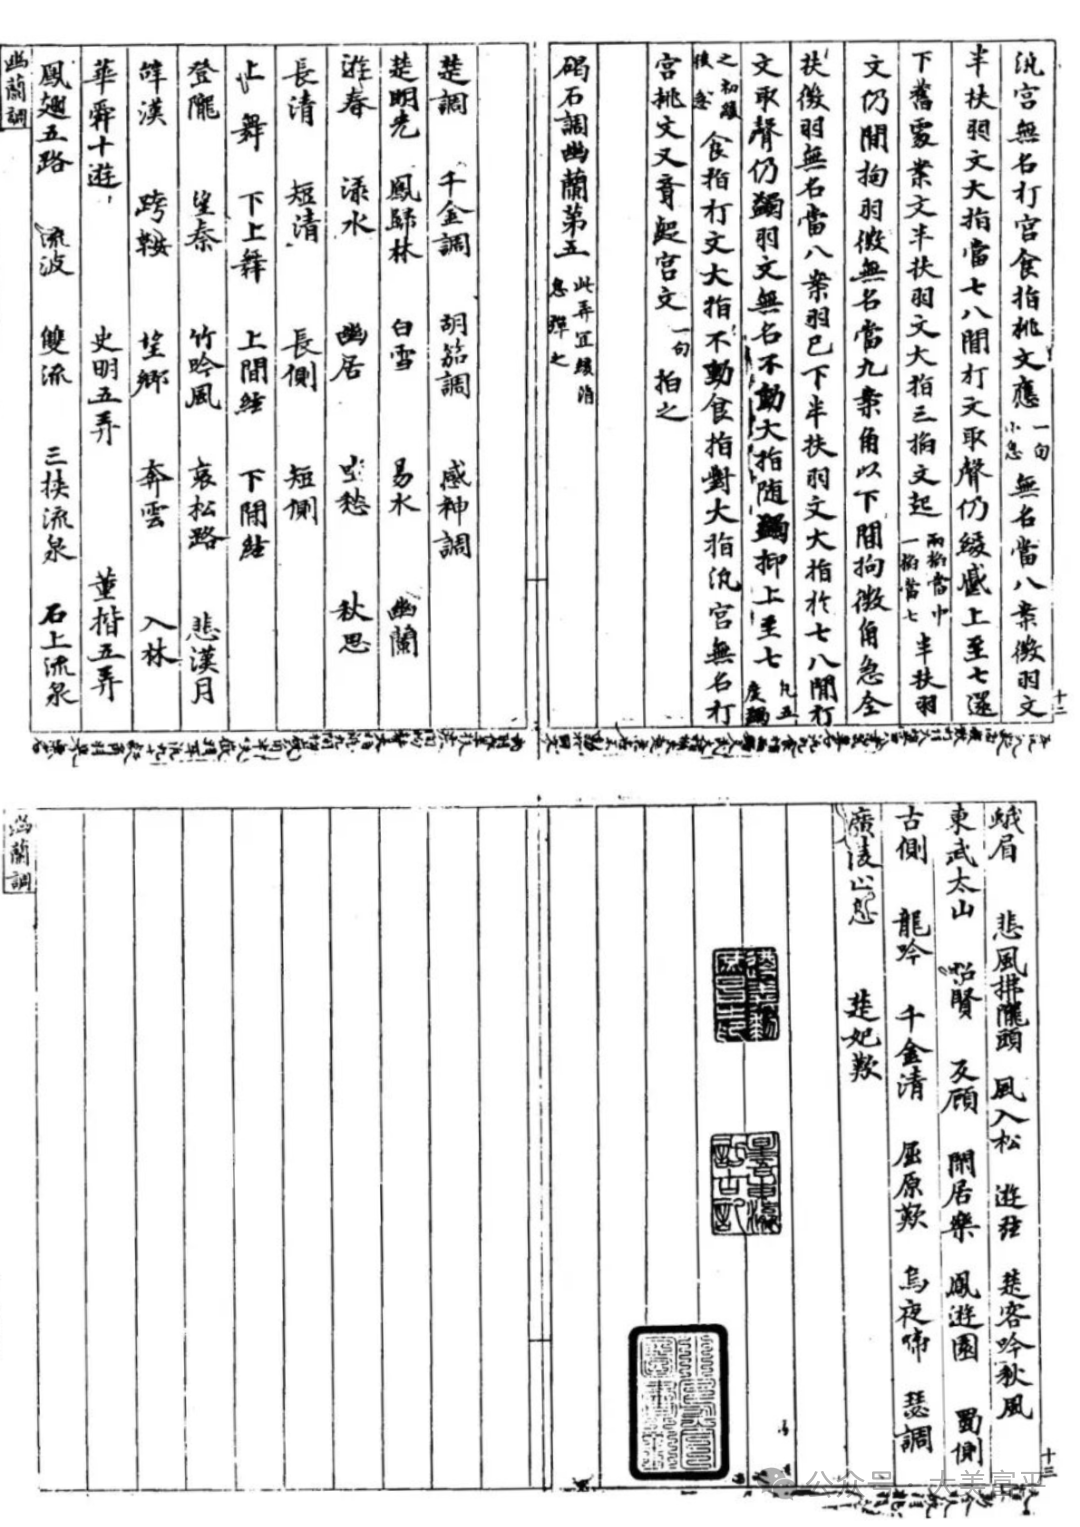 汎宮無名打宮食指挑文應一句小息無名當八案徵羽文
半扶羽文大指當七八間打文取聲仍緩感上至七還
下舊處案文半扶羽文大指三搯文起兩搯當中一搯當七半扶羽
文仍間拘羽徵無名當九案角以下間拘徵角急全
扶徵羽無名當八案羽已下半扶羽文大指於七八間打
文取聲仍蠲羽文無名不動大指随蠲抑上至七
之初緩後急食指打文大指不動食指對大指汎宮無名打
宮挑文又齊起宮文一句拍之
碣石調幽蘭第五此弄宜緩消息彈之
楚調 千金調 胡笳調 感神調
楚明光 鳳歸林 白雪 易水 幽蘭
遊春 淥水 幽居 坐愁 秋思
長清 短清 長側 短側
上舞 下上舞 上間絃 下間絃
登隴 望秦 竹吟風 哀松路 悲漢月
辞漢 跨鞍 望鄉 奔雲 入林
華舜十遊 史明五弄 董揩五弄
鳳翅五路 流波 雙流 三挾流泉 石上流泉
幽蘭調
十二
蛾眉 悲風拂隴頭 風入松 遊絃 楚客吟秋風
東武太山 招賢 反顧 閒居樂 鳳遊園 蜀側
古側 龍吟 千金清 屈原歎 烏夜啼 瑟調
廣陵止息 楚妃歎
幽蘭調
十三
公众号 · 大美富平